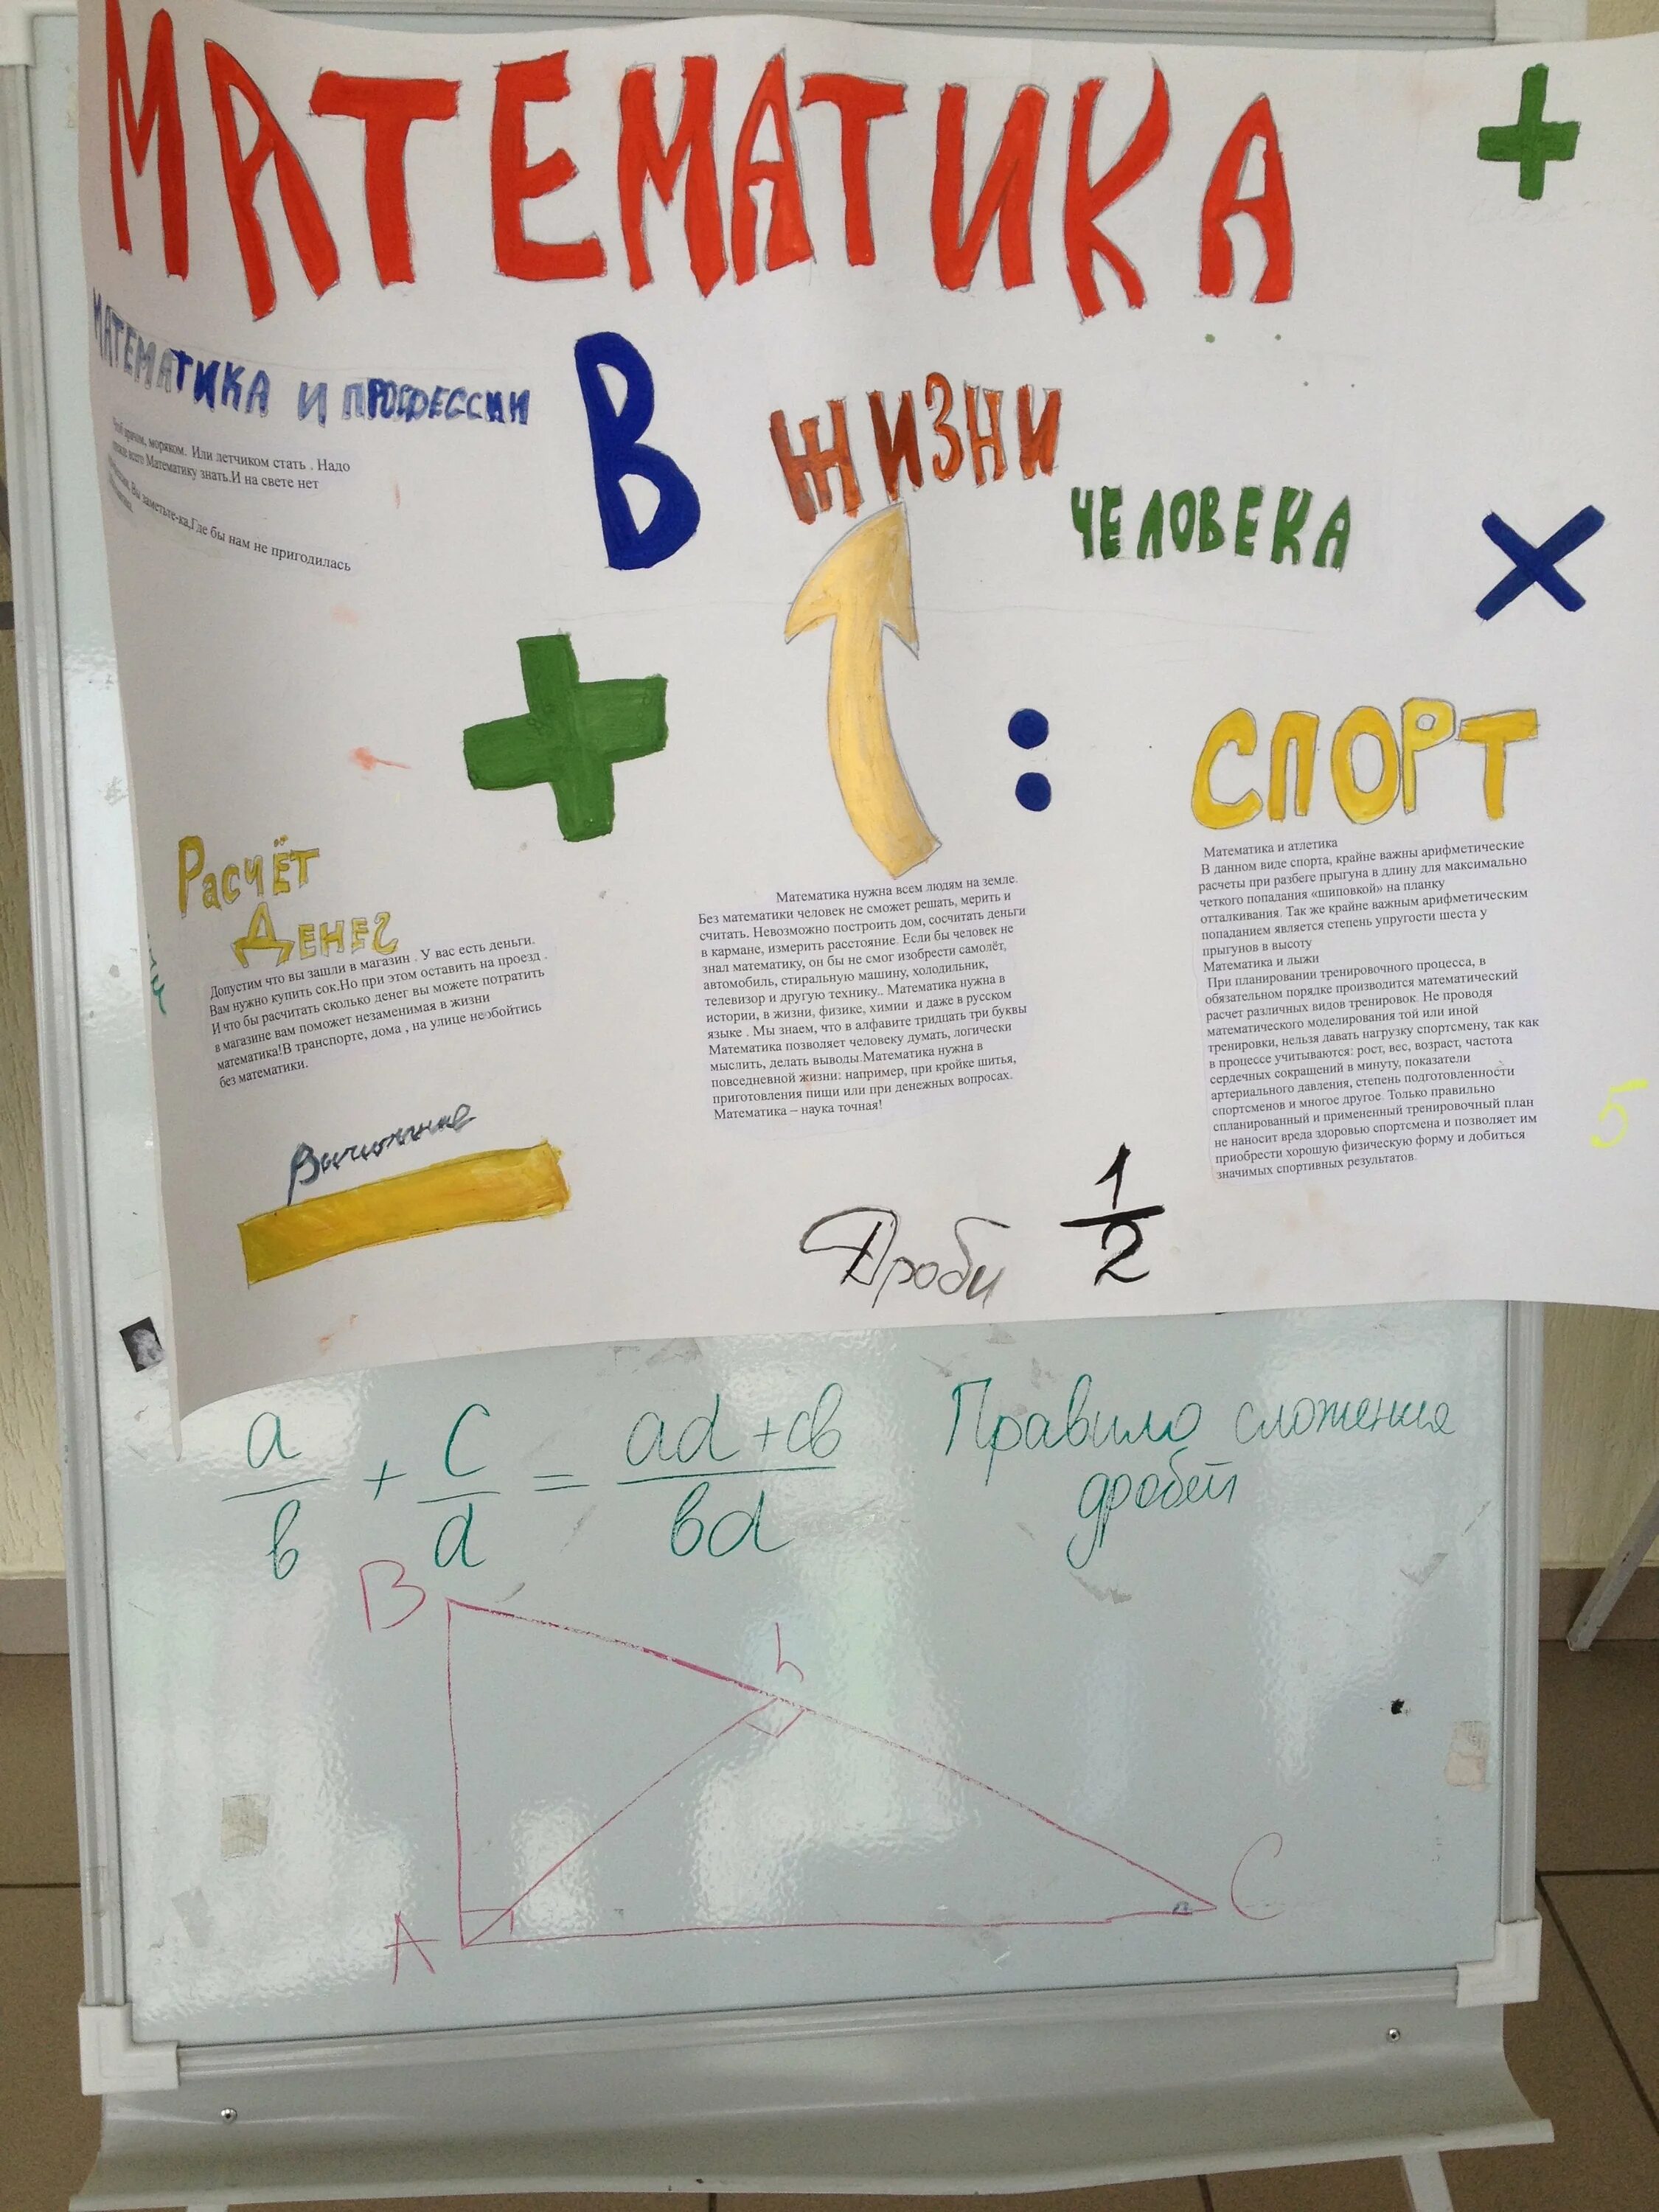 МАТЕМАТИКА
+
МАТЕМАТИКА И ПРОФЕССИИ
В
ЖИЗНИ
ЧЕЛОВЕКА
×
врачом, моряком. Или летчиком стать . Надо
всего Математику знать.И на свете нет
Вы заметьте-ка,Где бы нам не пригодилась
+
:
СПОРТ
РаСЧЁТ
ДЕНЕГ
Допустим что вы зашли в магазин . У вас есть деньги.
Вам нужно купить сок.Но при этом оставить на проезд .
И что бы расчитать сколько денег вы можете потратить
в магазине вам поможет незаменимая в жизни
математика!В транспорте, дома , на улице необойтись
без математики.
Математика нужна всем людям на земле.
Без математики человек не сможет решать, мерить и
считать. Невозможно построить дом, сосчитать деньги
в кармане, измерить расстояние. Если бы человек не
знал математику, он бы не смог изобрести самолёт,
автомобиль, стиральную машину, холодильник,
телевизор и другую технику.. Математика нужна в
истории, в жизни, физике, химии и даже в русском
языке . Мы знаем, что в алфавите тридцать три буквы
Математика позволяет человеку думать, логически
мыслить, делать выводы.Математика нужна в
повседневной жизни: например, при кройке шитья,
приготовления пищи или при денежных вопросах.
Математика – наука точная!
Математика и атлетика
В данном виде спорта, крайне важны арифметические
расчеты при разбеге прыгуна в длину для максимально
четкого попадания «шиповкой» на планку
отталкивания. Так же крайне важным арифметическим
попаданием является степень упругости шеста у
прыгунов в высоту
Математика и лыжи
При планировании тренировочного процесса, в
обязательном порядке производится математический
расчет различных видов тренировок. Не проводя
математического моделирования той или иной
тренировки, нельзя давать нагрузку спортсмену, так как
в процессе учитываются: рост, вес, возраст, частота
сердечных сокращений в минуту, показатели
артериального давления, степень подготовленности
спортсменов и многое другое. Только правильно
спланированный и примененный тренировочный план
не наносит вреда здоровью спортсмена и позволяет им
приобрести хорошую физическую форму и добиться
значимых спортивных результатов.
5
Вычитание
Дроби 1/2
a/b + c/d = ad+cb/bd Правило сложения
дробей
B
h
A
C